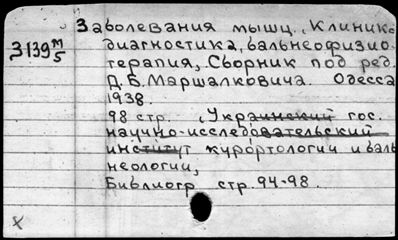 Заболевания мышц. Клинико-
З139 м/5
диагностика, бальнеофизио-
терапия, Сборник под ред.
Д. Б. Маршалковича. Одесса
1938.
98 стр. (Украинский гос.
научно-исследовательский
институт курортологии и баль
неологии,
Библиогр стр. 94-98.
х